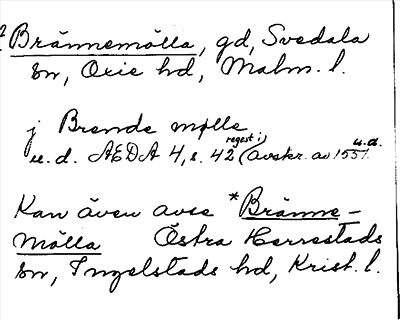 Brännemölla, gd, Svedala
sn, Oxie hd, Malm. l.
j Brende mølle
regest i
u.d. AEDA 4, s. 42 (avskr. av 1551. u.d.
Kan även avse *Bränne-
mölla Östra Herrestads
sn, Ingelstads hd, Krist. l.